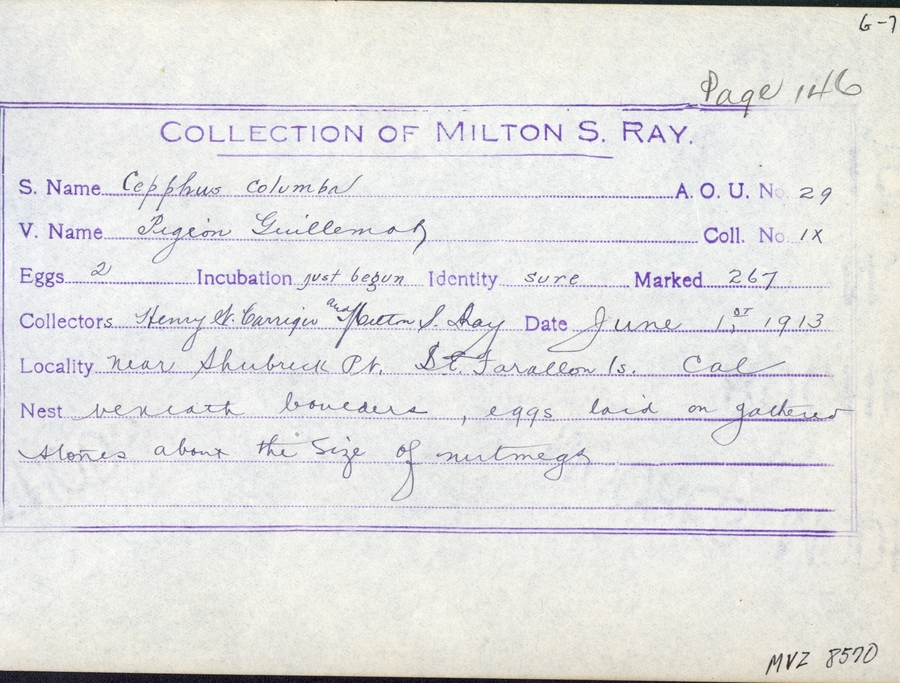 6-7
Page 146
COLLECTION OF MILTON S. RAY.
S. Name Cepphus columba A. O. U. No. 29
V. Name Pigeon Guillemot Coll. No. IX
Eggs 2 Incubation just begun Identity sure Marked 267
Collectors Henry W. Carriger and Milton S. Ray Date June 1, ST 1913
Locality near Shubrick Pt. Farallon Is. Cal
Nest beneath boulders, eggs laid on gathered
stones about the size of nutmegs
MVZ 8570